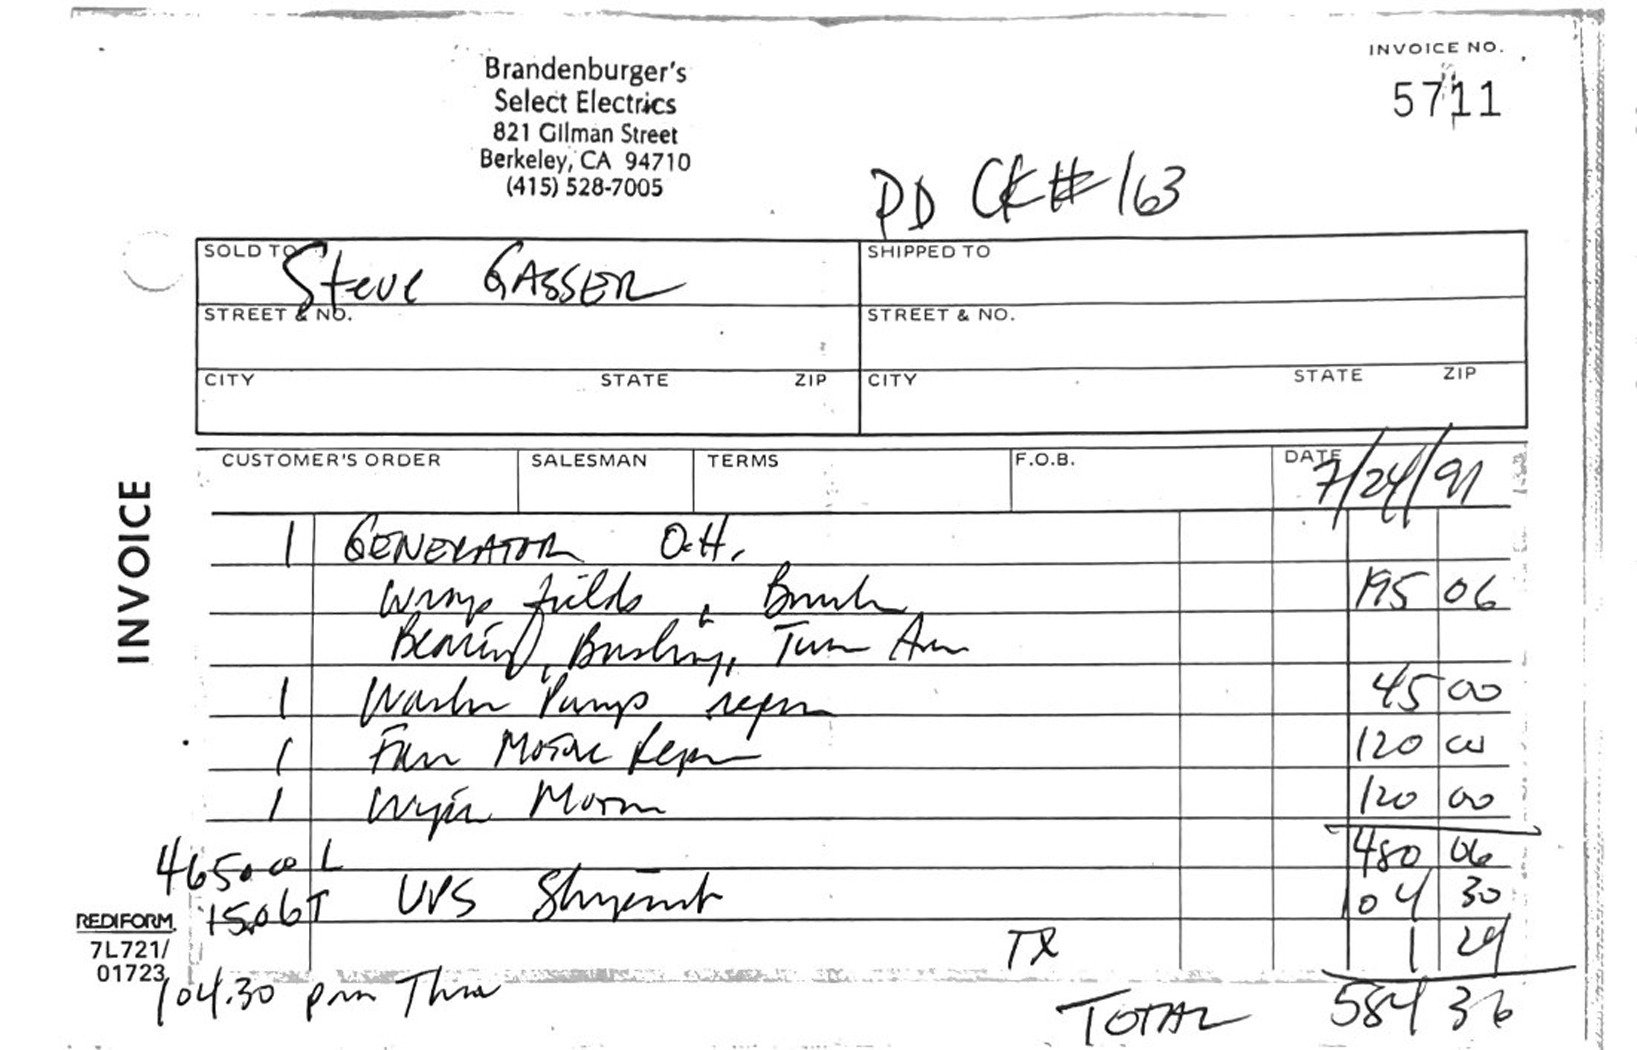 INVOICE NO.
5711
Brandenburger's
Select Electrics
821 Gilman Street
Berkeley, CA 94710
(415) 528-7005
PD CK# 163
SOLD TO Steve GASSER
SHIPPED TO
STREET & NO.
STREET & NO.
CITY STATE ZIP
CITY STATE ZIP
INVOICE
CUSTOMER'S ORDER SALESMAN TERMS F.O.B. DATE 7/24/91
1 GENERATOR O.H.
Wrap fields, Brush 195 06
Bearing, Bushing, Turn Arm
1 Washer Pump repair 45 00
1 Fan Motor Repair 120 00
1 Wiper Motor 120 00
480 06
465.00 L
15.06 T UPS Shipment 104 30
TX 1 24
REDIFORM
7L721/
01723
104.30
TOTAL 584 36